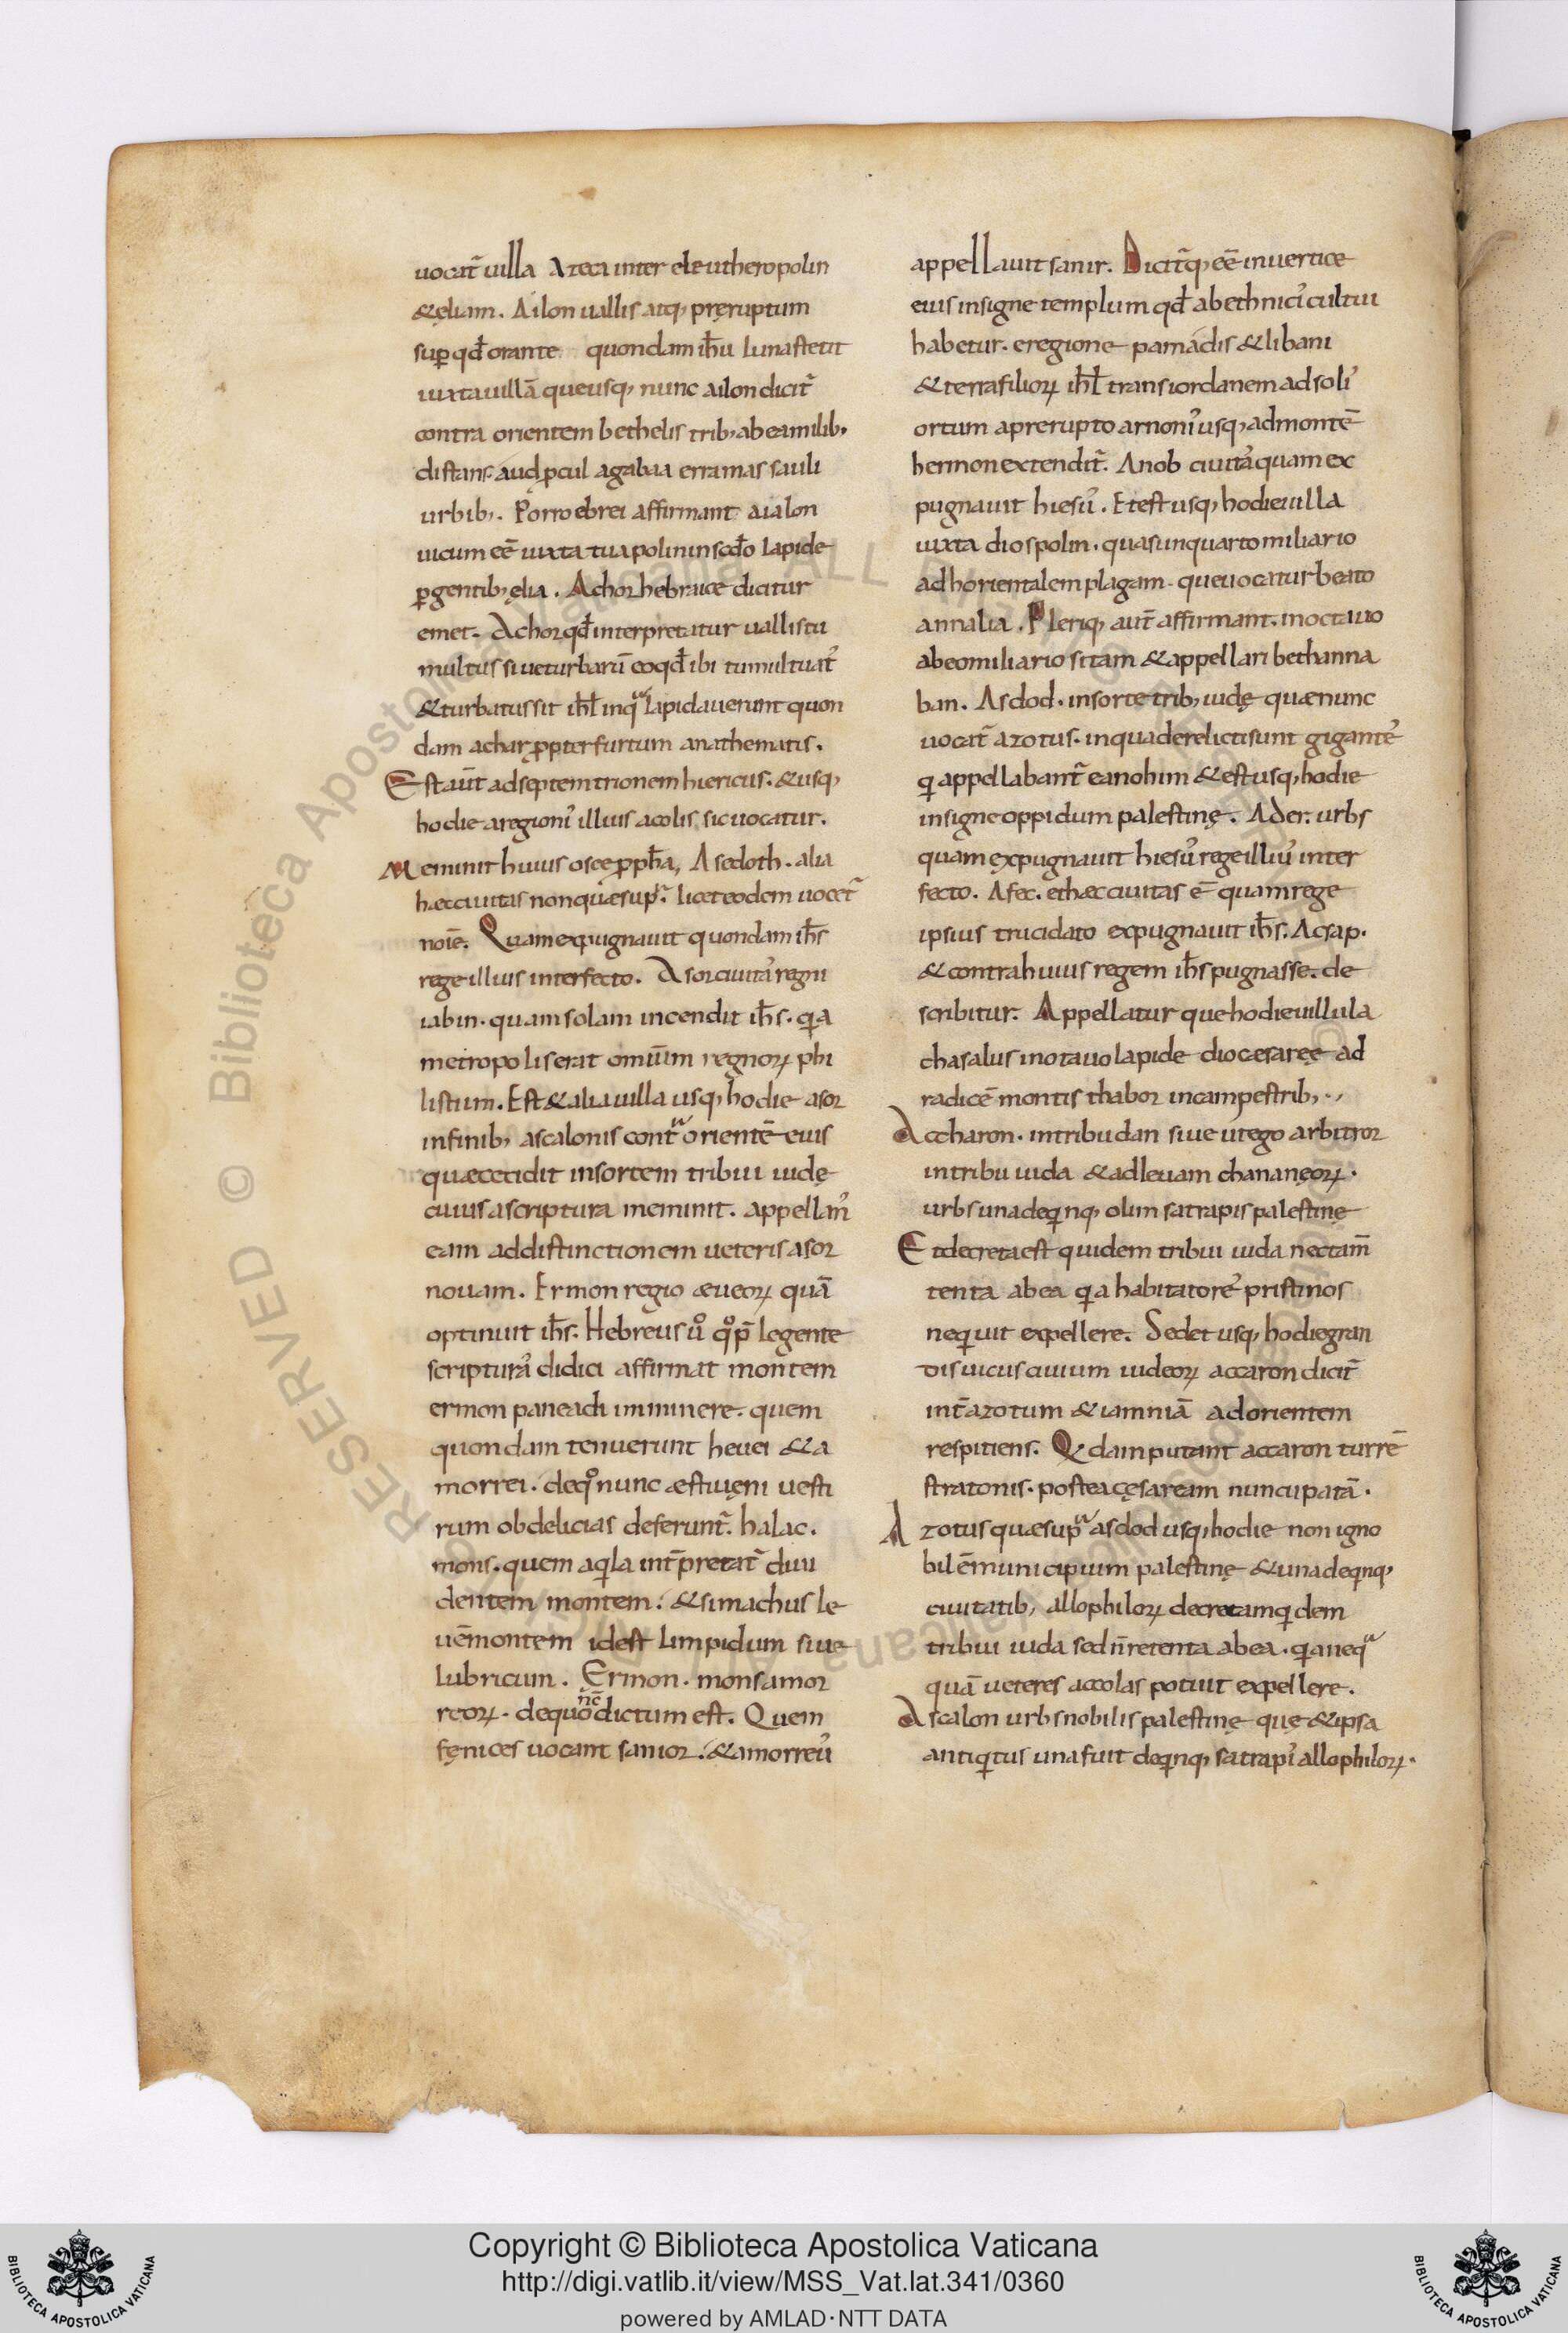 uocat̃ uilla Azeca inter eleutheropolin
&ęliam. Ailon uallis atq, pręruptum
sup̱ qđ orante quondam iħu luna stetit
iuxta uillā que usq, nunc ailon dicit̃
contra orientem bethelis trib, ab ea milib,
distans. aud ꝓcul agabaa erramas sauli
urbib,. Porro ebrei affirmant aialon
uicum eē iuxta tuapolin in scđo lapide
p̱gentib, ęlia. Achor hebraice dicitur
emet. Achor qđ interpretatur uallis tu
multus siue turbarū eo qđ ibi tumultuat᾽
& turbatus sit iħl in qua lapidauerunt quon
dam achar ꝓpter furtum anathematis.
Est aut̄ ad septemtrionem hiericus. & usq,
hodie a regioni᾽ illius acolis sic uocatur.
Meminit huius osce ꝓpħa, Asedoth. alia
hæc ciuitas non quæ sup̱ra. licet eodem uocet̃
noīe. Quam expugnauit quondam iħs
rege illius interfecto. Asor ciuita᾽ regni
iabin. quam solam incendit iħs. qia
metropolis erat omīum regnoꝝ phi
listium. Est & alia uilla usq, hodie asor
in finib, ascalonis contra orientē eius
quæ cecidit in sortem tribui iudę
cuius a scriptura meminit. appellan᾽
eam ad distinctionem ueteris asor
nouam. Ermon regio æueoꝝ quā
optinuit iħs. Hebreus uͦ qͦ p̄legente
scriptura᾽ didici affirmat montem
ermon paneadi imminere. quem
quondam tenuerunt heuei & a
morrei. de qͦ nunc æstiuęni uesti
rum ob delicias deferunt̃. halac.
mons. quem aqila int̄pretat̃ diui
dentem montem. & simachus le
uēmontem idest limpidum siue
lubricum. Ermon. mons amor
reoꝝ. de quo nc̄ dictum est. Quem
fęnices uocant sanior. & amorreu᾽
appellauit sanir. Dicit̃q, eē in uertice
eius insigne templum qđ ab ethnici᾽ cultui
habetur. e regione pamadis & libani
& terra filioꝝ iħl trans iordanem ad soli᾽
ortum a prerupto arnoni᾽ usq, ad montē
hermon extendit̃. Anob ciuita᾽ quam ex
pugnauit hiesu᾽. Et est usq, hodie uilla
iuxta diospolin. quasunquarto miliario
ad horientalem plagam. que uocatur beato
annalia. Pleriq, aut̄ affirmant. in octauo
ab eo miliario sitam & appellari bethanna
ban. Asdod. in sorte trib, iudę quæ nunc
uocat̃ azotus. in qua derelicti sunt gigante᾽
qi appellabant̃ eanohim & est usq, hodie
insigne oppidum palestinę. Ader. urbs
quam expugnauit hiesu᾽ rege illiu᾽ inter
fecto. Afec. et hæc ciuitas ē quam rege
ipsius trucidato expugnauit iħs. Acsap.
& contra huius regem iħs pugnasse. de
scribitur. Appellatur que hodie uillula
chasalus in otauo lapide diocæsareę ad
radicē montis thabor in campestrib,.,
Accharon. in tribu dan siue ut ego arbitror
in tribu iuda & ad leuam chananęoꝝ.
urbs una de qinq, olim satrapis palestinę
Et decreta est quidem tribui iuda nec tam̄
tenta ab ea qia habitatore᾽ pristinos
neqiuit expellere. Sed et usq, hodie gran
dis uicus ciuium iudeoꝝ accaron dicit̃
int̄ azotum & iamniā ad orientem
respitiens. Qidam putant accaron turrē
stratonis. postea cęsaream nuncupatā.
Azotus quæ sup̱ra asdod usq, hodie non igno
bilē municipium palestinę & una de qinq,
ciuitatib, allophiloꝝ decretam qidem
tribui iuda sed n̄ retenta ab ea. qia nequa
quā ueteres accolas potuit expellere.
Ascalon urbs nobilis palestinę quę & ipsa
antiqitus una fuit de qinq, satrapi᾽ allophiloꝝ.
Copyright © Biblioteca Apostolica Vaticana
http://digi.vatlib.it/view/MSS_Vat.lat.341/0360
powered by AMLAD·NTT DATA